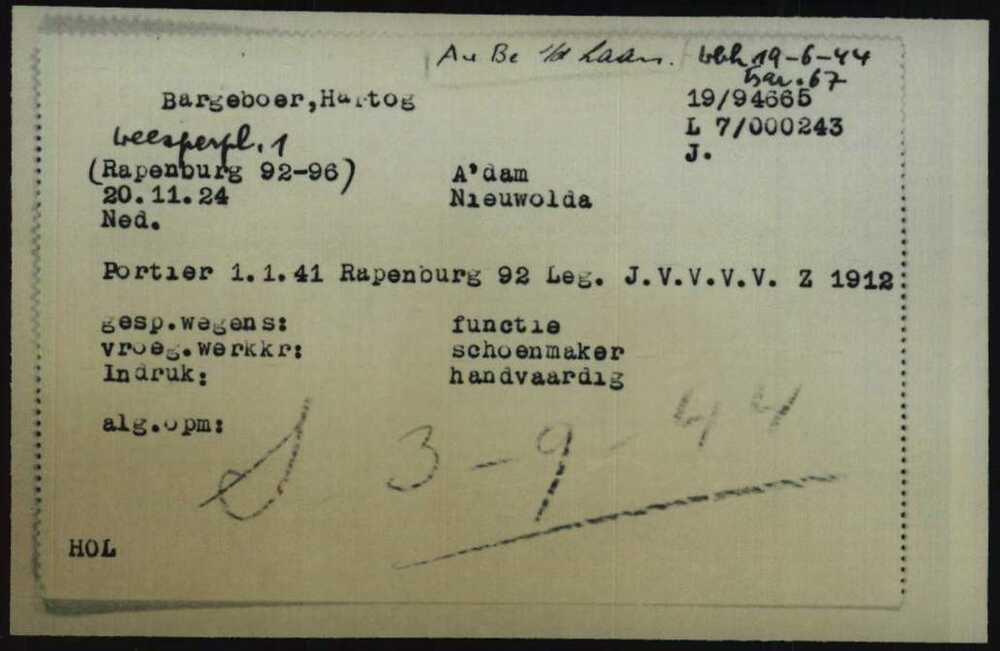 Au Be v/d Laan. wbk 19-6-44
bar. 67
Bargeboer,Hartog 19/94665
L 7/000243
Weesperpl. 1 J.
(Rapenburg 92-96) A'dam
20.11.24 Nieuwolda
Ned.
Portier 1.1.41 Rapenburg 92 Leg. J.V.V.V.V. Z 1912
gesp.wegens: functie
vroeg.werkkr: schoenmaker
Indruk: handvaardig
alg.opm:
S 3-9-44
HOL